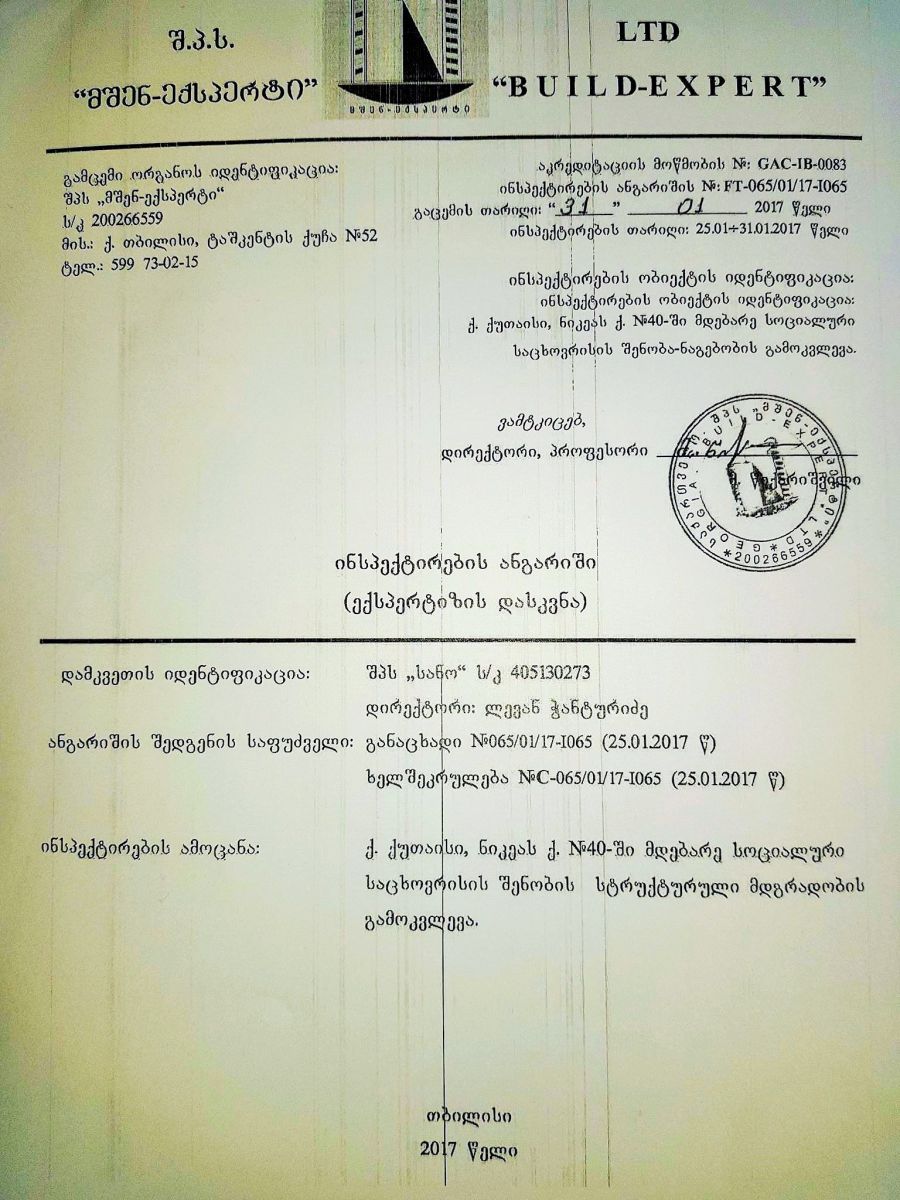 შ.პ.ს.
“მშენ-ექსპერტი”
მშენ-ექსპერტი
LTD
“BUILD-EXPERT”
გამცემი ორგანოს იდენტიფიკაცია:
შპს „მშენ-ექსპერტი“
ს/კ 200266559
მის.: ქ. თბილისი, ტაშკენტის ქუჩა №52
ტელ.: 599 73-02-15
აკრედიტაციის მოწმობის №: GAC-IB-0083
ინსპექტირების ანგარიშის №: FT-065/01/17-I065
გაცემის თარიღი: “31” 01 2017 წელი
ინსპექტირების თარიღი: 25.01÷31.01.2017 წელი
ინსპექტირების ობიექტის იდენტიფიკაცია:
ინსპექტირების ობიექტის იდენტიფიკაცია:
ქ. ქუთაისი, ნიკეას ქ. №40-ში მდებარე სოციალური
საცხოვრისის შენობა-ნაგებობის გამოკვლევა.
ვამტკიცებ,
დირექტორი, პროფესორი
საქართველო. შპს „მშენ-ექსპერტი“ *200266559*
BUILD-EXPERT, LTD * GEORGIA
ინსპექტირების ანგარიში
(ექსპერტიზის დასკვნა)
დამკვეთის იდენტიფიკაცია: შპს „სანო“ ს/კ 405130273
დირექტორი: ლევან ჭანტურიძე
ანგარიშის შედგენის საფუძველი: განაცხადი №065/01/17-I065 (25.01.2017 წ)
ხელშეკრულება №C-065/01/17-I065 (25.01.2017 წ)
ინსპექტირების ამოცანა: ქ. ქუთაისი, ნიკეას ქ. №40-ში მდებარე სოციალური
საცხოვრისის შენობის სტრუქტურული მდგრადობის
გამოკვლევა.
თბილისი
2017 წელი